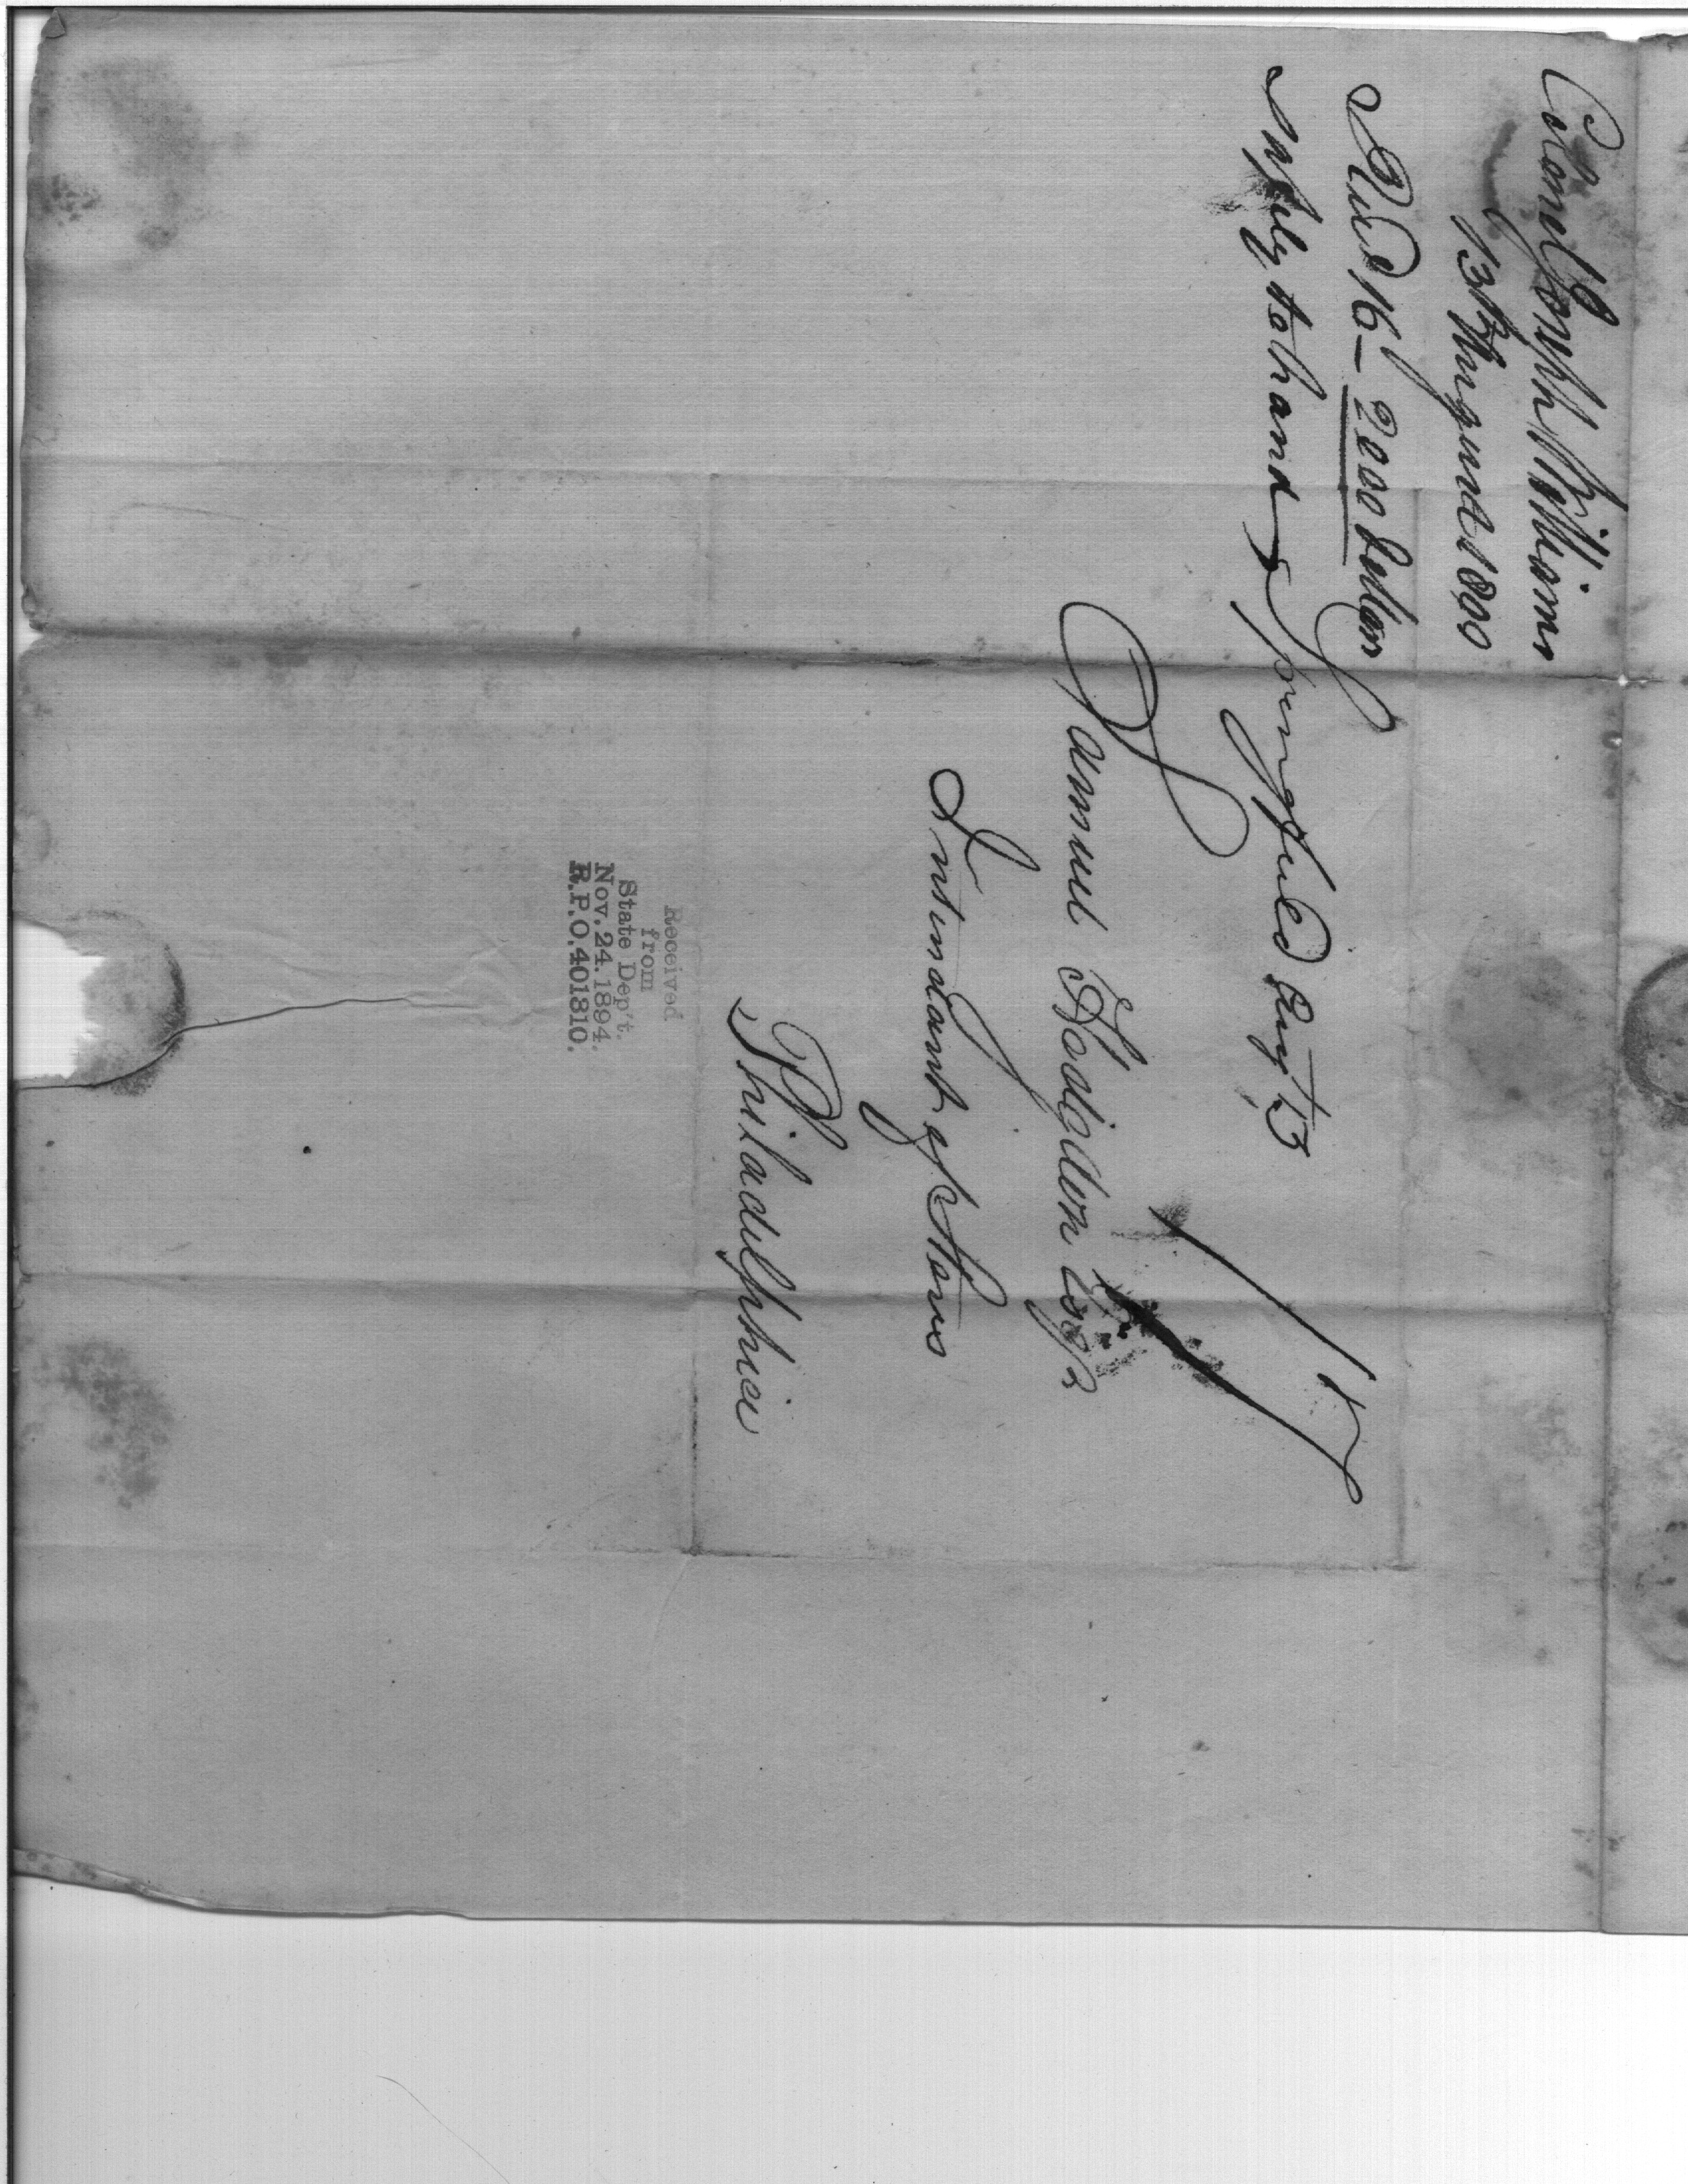 Colonel Joseph Williams
13th August 1800
Recd 16 — 2000 Dollars
safely to hand
Springfield Aug 13
17
Samuel Hodgdon Esqr
Intendant of Stores
Philadelphia
Received
from
State Dep't.
Nov. 24. 1894.
R.P.O. 401310.